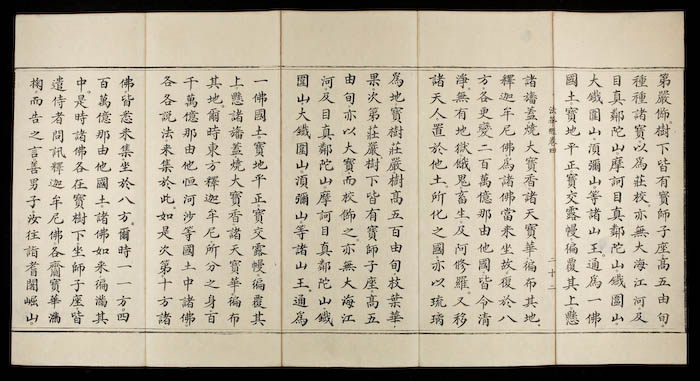 第嚴飾樹下皆有寶師子座高五由旬
種種諸寶以爲莊校亦無大海江河及
目真鄰陀山摩訶目真鄰陀山鐵圍山
大鐵圍山須彌山等諸山王通爲一佛
國土寶地平正寶交露幔徧覆其上懸
法華經卷四 二十二
諸旛蓋燒大寶香諸天寶華徧布其地
釋迦牟尼佛爲諸佛當來坐故復於八
方各更變二百萬億那由他國皆令清
淨無有地獄餓鬼畜生及阿修羅又移
諸天人置於他土所化之國亦以琉璃
爲地寶樹莊嚴樹高五百由旬枝葉華
果次第莊嚴樹下皆有寶師子座高五
由旬亦以大寶而校飾之亦無大海江
河及目真鄰陀山摩訶目真鄰陀山鐵
圍山大鐵圍山須彌山等諸山王通爲
一佛國土寶地平正寶交露幔徧覆其
上懸諸旛蓋燒大寶香諸天寶華徧布
其地爾時東方釋迦牟尼所分之身百
千萬億那由他恒河沙等國土中諸佛
各各說法來集於此如是次第十方諸
佛皆悉來集坐於八方爾時一一方四
百萬億那由他國土諸佛如來徧滿其
中是時諸佛各在寶樹下坐師子座皆
遣侍者問訊釋迦牟尼佛各齎寶華滿
掬而告之言善男子汝往詣耆闍崛山